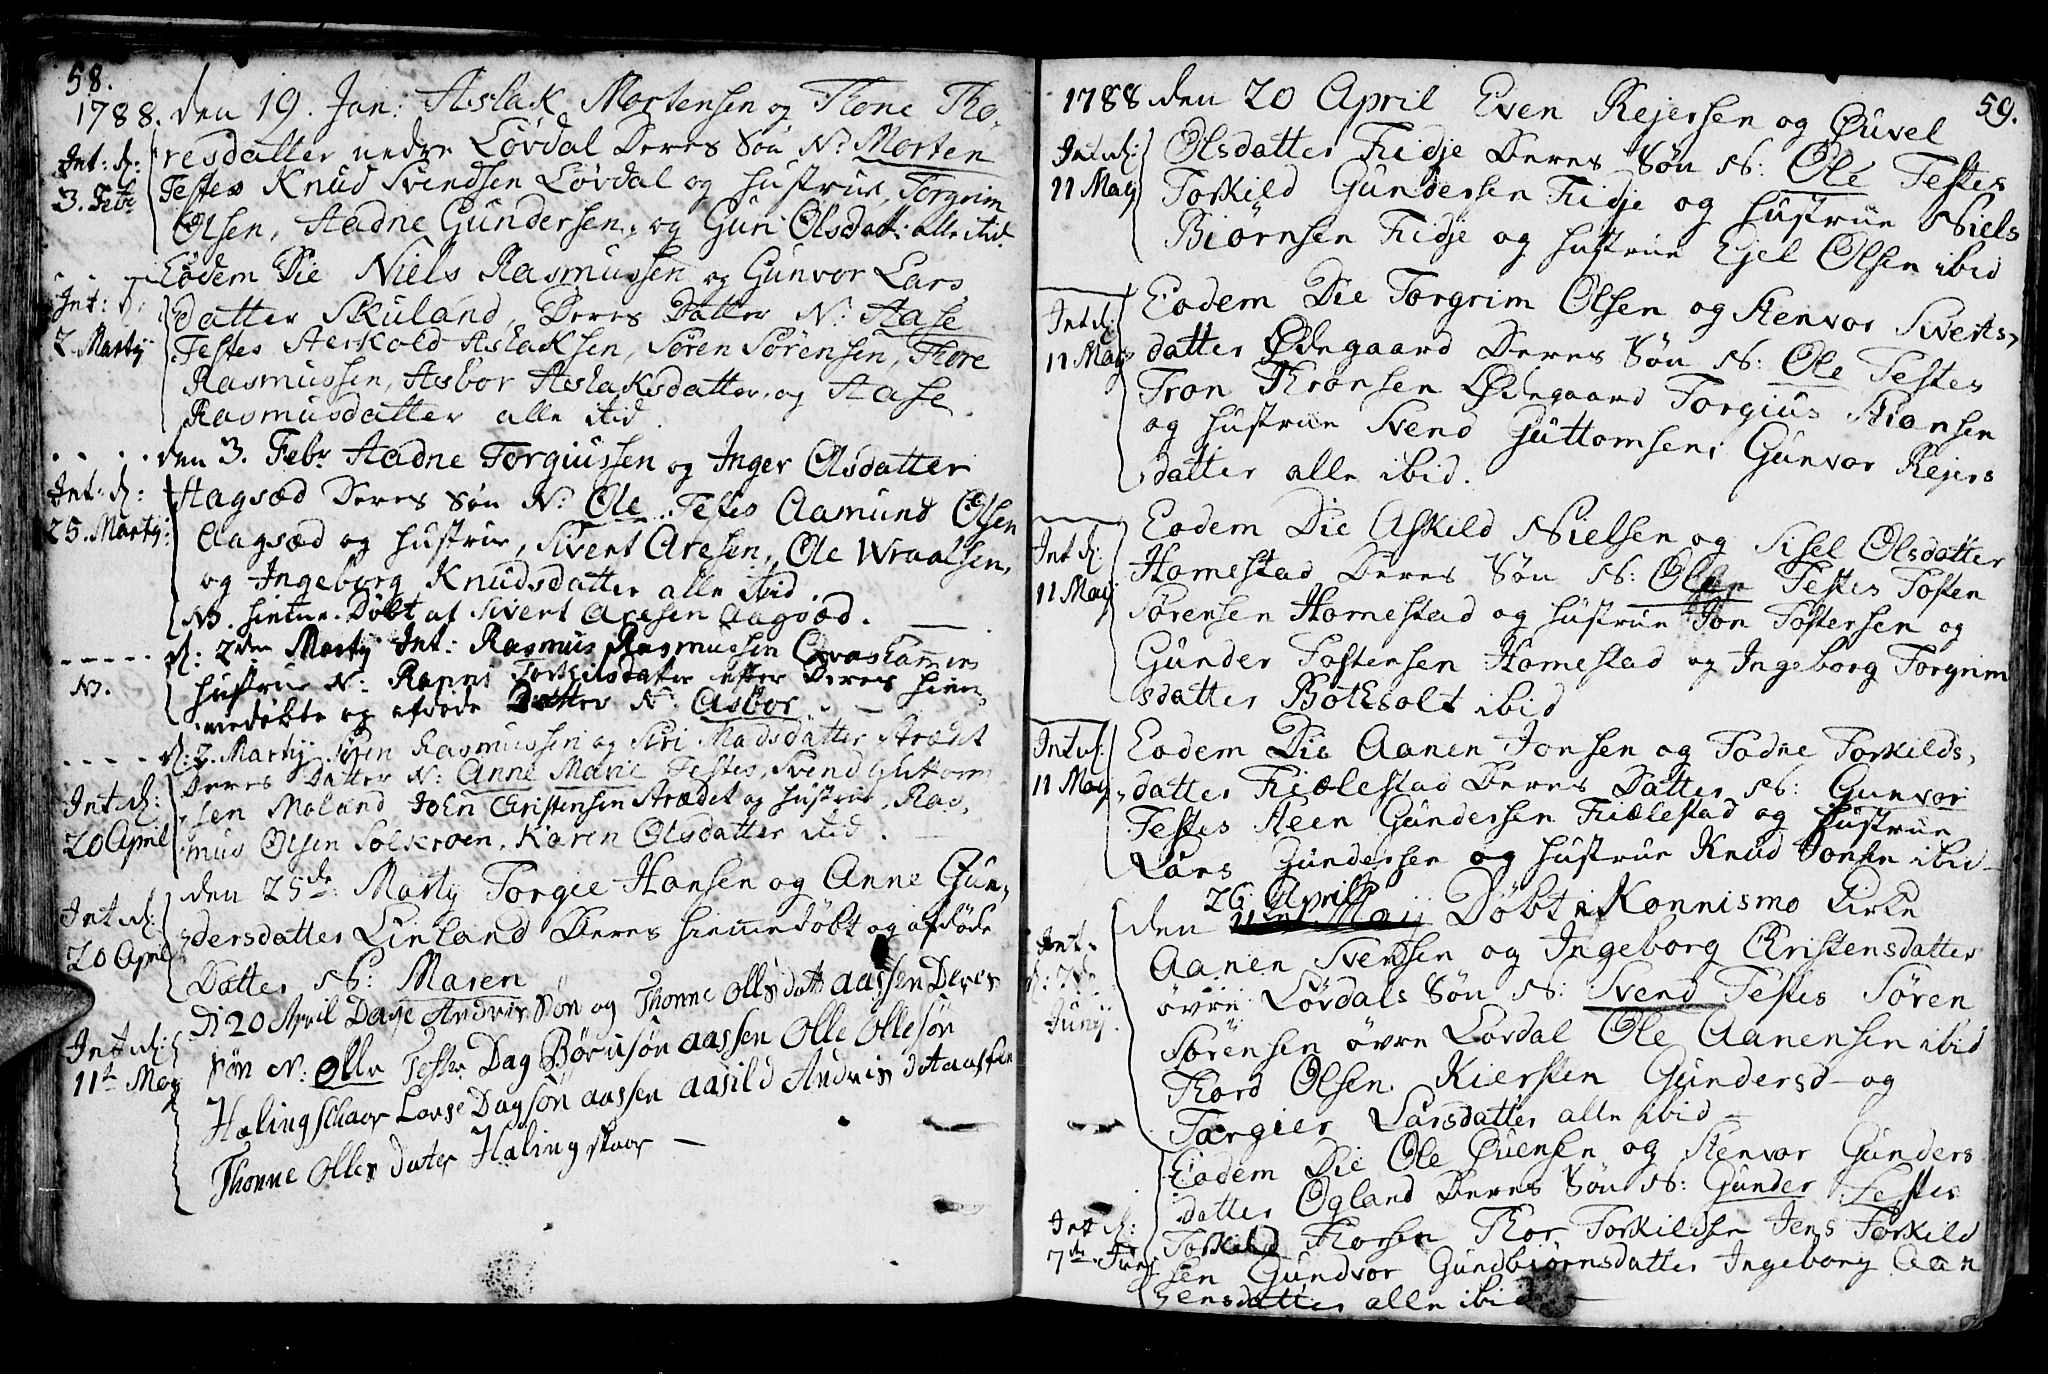 58.
1788. den 19. Jan: Aslak Mortensen og Tone Tho,
Int: d: resdatter nedre Løvdal Deres Søn N: Morten
3. Febr Testes Knud Svendsen Løvdal og Hustrue, Torgrim
Olsen, Aadne Gundersen, og Guri Olsdatt: alle ibid.
Eodem Die Niels Rasmussen og Gunvor Lars
Int: d: datter Skuland, Deres Datter N: Aase
2. Marty Testes Aeskold Aslaksen, Søren Sørensen, Tore
Rasmussen, Asbor Aslaksdatter, og Aase
Rasmusdatter alle ibid.
den 3. Febr Aadne Torgiussen og Inger Olsdatter
Int: d: Aagsæd Deres Søn N: Ole Testes Aamund Olsen
25. Marty: Aagsæd og Hustrue, Sivert Aresen, Ole Wraalsen,
og Ingeborg Knudsdatter alle ibid.
NB. hiemme Døbt af Sivert Aresen Aagsæd.
d: 2den Marty Int: Rasmus Rasmussen
NB. Hustrue N: Ranni Torkilsdatter efter Deres hiem
medøbte og afdøde Datter N: Asbor.
d: 2. Marty Søren Rasmussen og Siri Madsdatter Strædet
Deres Datter N: Anne Marie Testes, Svend Guttorm
Int d: sen Moland John Christensen Strædet og Hustrue, Ras,
20 April mus Olsen Solkroen, Karen Olsdatter ibid.
den 25de Marty Torgie Hansen og Anne Gun,
Int d: dersdatter Linland Deres hiemmedøbt og afdøde
20 April Datter N: Maren
D 20 April Daye Andris Søn og Thonne Olles datt aassen Deres
Int d: Søn N: Olle Teste Dag Børusøn aassen Olle Ollesøn
11t May Halingschaar Lasse Dagsøn aassen aasild Andris d Aassen
Thonne Olles dater Halingskaar
59.
1788 den 20 April Even Rejersen og Øuvel
Int d: Olsdatter Fidje Deres Søn N: Ole Testes
11 May Torkild Gundersen Fidje og Hustrue Niels
Biørnsen Fidje og Hustrue Ejel Olsen ibid
Eodem Die Torgrim Olsen og Stenvor Siverts,
Int d: datter Ødegaard Deres Søn N: Ole Testes
11 May Tron Thronsen Ødegaard Torgius
og Hustrue Svend Guttormsen, Gunvor Rejers
datter alle ibid.
Eodem Die Askild Nielsen og Sisel Olsdatter
Int d: Homestad Deres Søn N: Testes Tosten
11 May Sørensen Homestad og Hustrue Jon Tostensen og
Gunder Tostensen Homestad og Ingeborg Torgrim
sdatter ibid
Int d: Eodem Die Aanen Jonsen og Todne Torkilds,
11 May datter Fiælestad Deres Datter N: Gunvor
Testes Steen Gundersen Fiælestad og Hustrue
Lars Gundersen og Hustrue Knud Jonsen ibid
26 April
den 11 May Døbt i Konnismo Kirke
Int. Aanen Svensen og Ingeborg Christensdatter
d: 7de øvre Løvdals Søn N: Svend Testes Søren
Junij. Sørensen øvre Løvdal Ole Aanensen ibid
Thord Olsen Kiersten Gundersd og
Tørgier Larsdatter alle ibid
Eodem Die Ole Øuensen og Stenvor Gunders
datter Øgland Deres Søn N: Gunder Testes
Int d: Torkild Thorsen Thor Torkildsen Jens Torkild
7de Junj sen Gundvor Gundbiørnsdatter Ingeborg Aan
ensdatter alle ibid